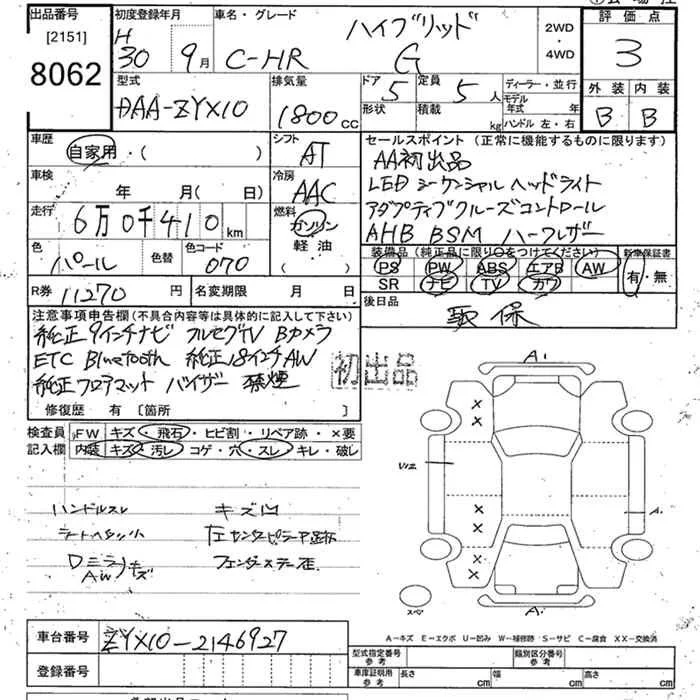 出品番号 初度登録年月 車名・グレード ハイブリッド 2WD・4WD 評価点
[2151] H 30 9月 C-HR G 3
8062
型式 排気量 ドア 定員 ディーラー・並行 外装 内装
DAA-ZYX10 1800cc 5 5人 モデル 年式 年 B B
形状 積載 kg ハンドル 左・右
車歴 シフト セールスポイント (正常に機能するものに限ります)
自家用・( ) AT AA初出品
車検 冷房 LED シーケンシャル ヘッドライト
年 月(日) AAC アダプティブクルーズコントロール
走行 燃料 AHB BSM ハーフレザー
6万0千410km ガソリン
色 色替 色コード 軽油 装備品(純正品に限り○をつけてください) 新車保証書
パール 070 ( ) PS PW ABS エアB AW 有・無
SR ナビ TV カワ
R券 11270円 名変期限 月 日 後日品
取 保
注意事項申告欄(不具合内容等は具体的に記入して下さい)
純正9インチナビ フルセグTV Bカメラ
ETC Bluetooth 純正18インチAW
純正フロアマット バイザー 禁煙
初出品
修復歴 有 [箇所 ]
検査員 FW キズ・飛石・ヒビ割・リペア跡・×要
記入欄 内装 キズ・汚レ・コゲ・穴・スレ・キレ・破レ
ハンドルスレ キズ凹
左センターピラー
フェンダーステー歪
AW キズ
A1
A
A1
車台番号 ZYX10-2146927
A-キズ E-エクボ U-凹み W-補修跡 S-サビ C-腐食 XX-交換済
登録番号
型式指定番号 参考 類別区分番号 参考
車庫証明用 参考 長さ cm 幅 cm 高さ cm